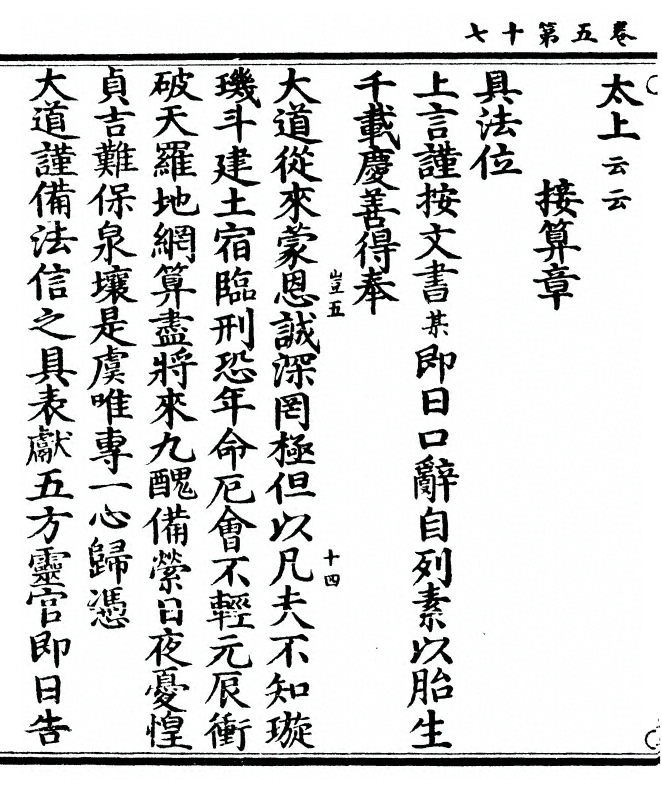 卷五第十七
太上云云
接算章
具法位
上言謹按文書某即日口辭自列素以胎生
千載慶善得奉
豈五
十四
大道從來蒙恩誠深罔極但以凡夫不知璇
璣斗建土宿臨刑恐年命厄會不輕元辰衝
破天羅地網算盡將來九醜備縈日夜憂惶
貞吉難保泉壤是虞唯專一心歸憑
大道謹備法信之具表獻五方靈官即日告